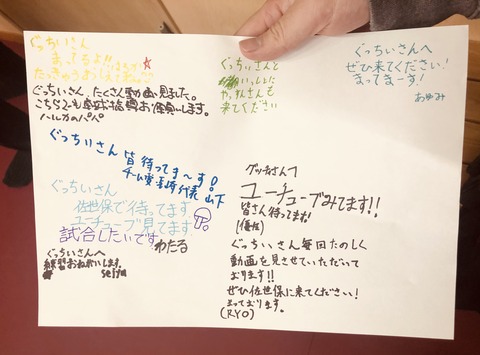 ぐっちぃさん
まってるよ!!
たっきゅうおしえてね
ぐっちぃさん、たくさん動画見ました。
こちらでも卓球指導お願いします。
ハルカのパパ
ぐっちぃさんと
いっしょに
やっすんさんも
来てください
ぐっちぃさんへ
ぜひ来てください!
まってまーす!
あゆみ
ぐっちぃさん
皆待ってま〜す!
チーム 長崎代表 山下
ぐっちぃさん
佐世保で待ってます
ユーチューブ見てます
試合したいです
わたる
ぐっちぃさんへ
練習おねがいします。
seiya
グッチィさんへ
ユーチューブみてます!!
皆さん待ってます!
(優佳)
ぐっちぃさん毎回たのしく
動画を見させていただいて
おります!!
ぜひ佐世保に来てください!
まっております。
(RYO)